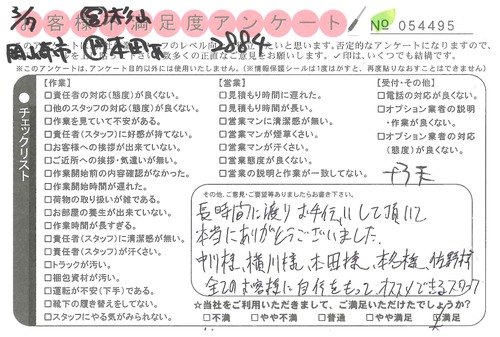 3/7 営杉山
お客様満足度アンケート
No 054495
岡崎市 本田市 2884
※このアンケートは、アンケート目的以外には使用いたしません。(※情報保護シールは1度はがすと、再度貼りなおすことはできません)
チェックリスト
【作業】
□責任者の対応(態度)が良くない。
□他のスタッフの対応(態度)が良くない。
□作業を見ていて不安がある。
□責任者(スタッフ)に好感が持てない。
□お客様への挨拶が出来ていない。
□ご近所への挨拶・気遣いが無い。
□作業開始前の内容確認がなかった。
□作業開始時間が遅れた。
□荷物の取り扱いが雑である。
□お部屋の養生が出来ていない。
□作業時間が長すぎる。
□責任者(スタッフ)に清潔感が無い。
□責任者(スタッフ)が汗くさい。
□トラックが汚い。
□梱包資材が汚い。
□運転が不安(下手)である。
□靴下の履き替えをしてない。
□スタッフにやる気がみられない。
【営業】
□見積もり時間に遅れた。
□見積もり時間が長い。
□営業マンに清潔感が無い。
□営業マンが煙草くさい。
□営業マンが汗くさい。
□営業態度が良くない。
□営業の説明と作業が一致してない。
【受付・その他】
□電話の対応が良くない。
□オプション業者の説明・作業が良くない。
□オプション業者の対応(態度)が良くない。
その他、ご意見・ご要望等ありましたらお書き下さい。
長時間に渡りお手伝いして頂いて
本当にありがとうございました。
中川様、横川様、本田様、本名様、佐野様
全てのお客様に自信をもってオススメできるスタッフ
☆当社をご利用いただきまして、ご満足いただけたでしょうか?
□不満 □やや不満 □普通 □やや満足 ☑満足